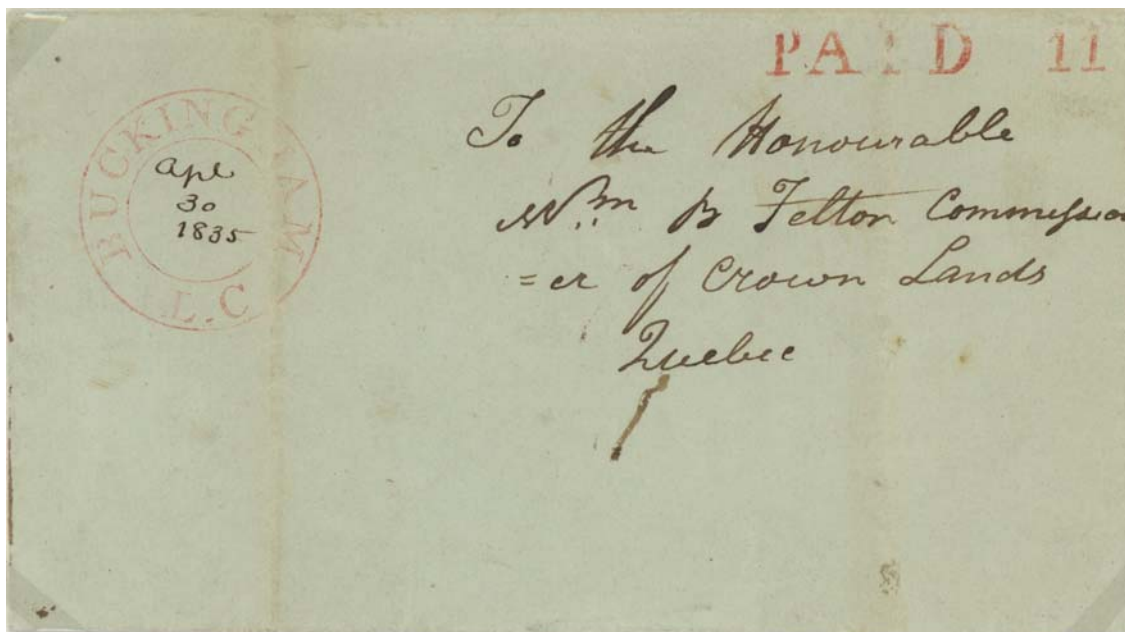 PAID 11
BUCKINGAM
L.C
Apl
30
1835
To the Honourable
Wm B Felton Commission
=er of Crown Lands
Quebec